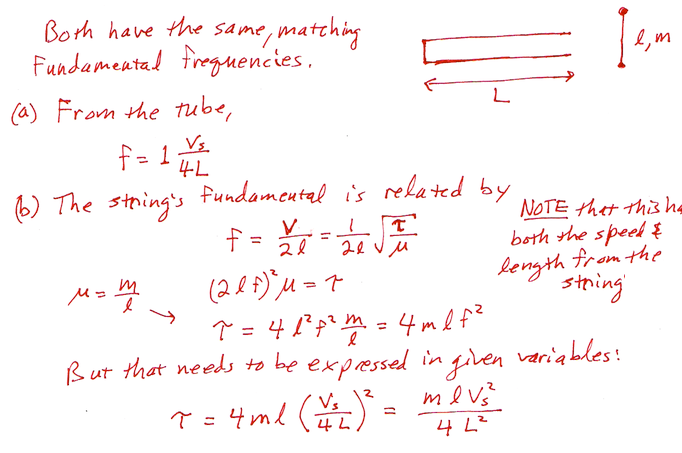 Both have the same, matching
Fundamental frequencies.
l, m
L
(a) From the tube,
f = 1 Vs/4L
(b) The string's fundamental is related by
f = V/2l = 1/2l √τ/μ
NOTE that this ha
both the speed &
length from the
string
μ = m/l → (2lf)²μ = τ
τ = 4l²f² m/l = 4mlf²
But that needs to be expressed in given variables:
τ = 4ml (Vs/4L)² = mlVs²/4L²